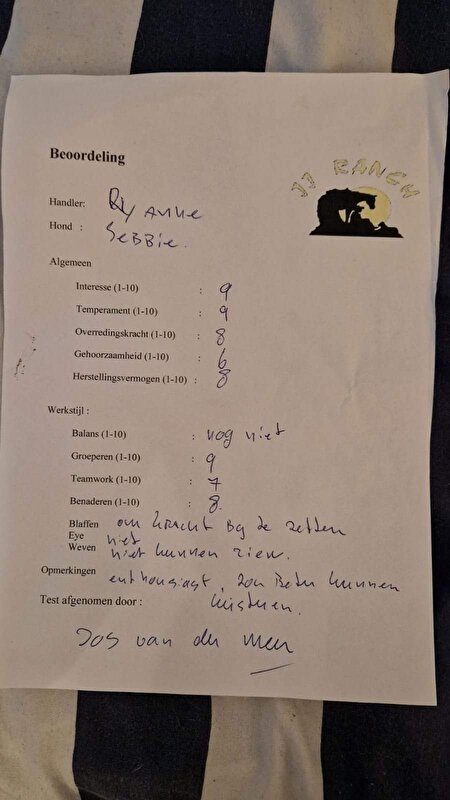 JJ RANCH
Beoordeling
Handler: Ryanne
Hond : SEBBIE.
Algemeen
Interesse (1-10) : 9
Temperament (1-10) : 9
Overredingskracht (1-10) : 8
Gehoorzaamheid (1-10) : 6
Herstellingsvermogen (1-10) : 8
Werkstijl :
Balans (1-10) : nog niet
Groeperen (1-10) : 9
Teamwork (1-10) : 7
Benaderen (1-10) : 8.
Blaffen om kracht bij te zetten
Eye niet
Weven niet kunnen zien.
Opmerkingen enthousiast, zou beter kunnen
Test afgenomen door : luisteren.
Jos van der Meer